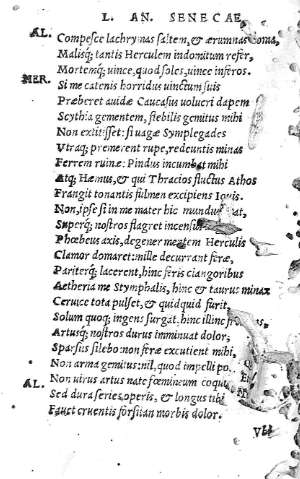 L. AN. SENECAE
AL. Compesce lachrymas saltem, & ærumnas doma,
Malisq; tantis Herculem indomitum refer,
Mortemq; uince, quod soles, uince inferos.
MER. Si me catenis horridus uinctum suis
Præberet auidæ Caucasus uolucri dapem
Scythia gementem, flebilis gemitus mihi
Non extitisset: si uagæ Symplegades
Vtraq; premerent rupe, redeuntis minas
Ferrem ruinæ: Pindus incumbat mihi
Atq; Hæmus, & qui Thracios fluctus Athos
Frangit tonantis fulmen excipiens Iouis.
Non, ipse si in me mater hic mundus
Superq; nostros flagret incensus
Phœbeus axis, degener mentem Herculis
Clamor domaret: mille decurrant feræ,
Pariterq; lacerent, hinc feris clangoribus
Aetheria me Stymphalis, hinc & taurus minax
Ceruice tota pulset, & quidquid furit,
Solum quoq; ingens surgat, hinc illinc
Artusq; nostros durus imminuat dolor,
Sparsus silebo: non feræ excutient mihi,
Non arma gemitus: nil, quod impelli po
AL. Non uirus artus nate fœmineum coqu
Sed dura series, operis, & longus tibi
Pauit cruentis forsitan morbis dolor.